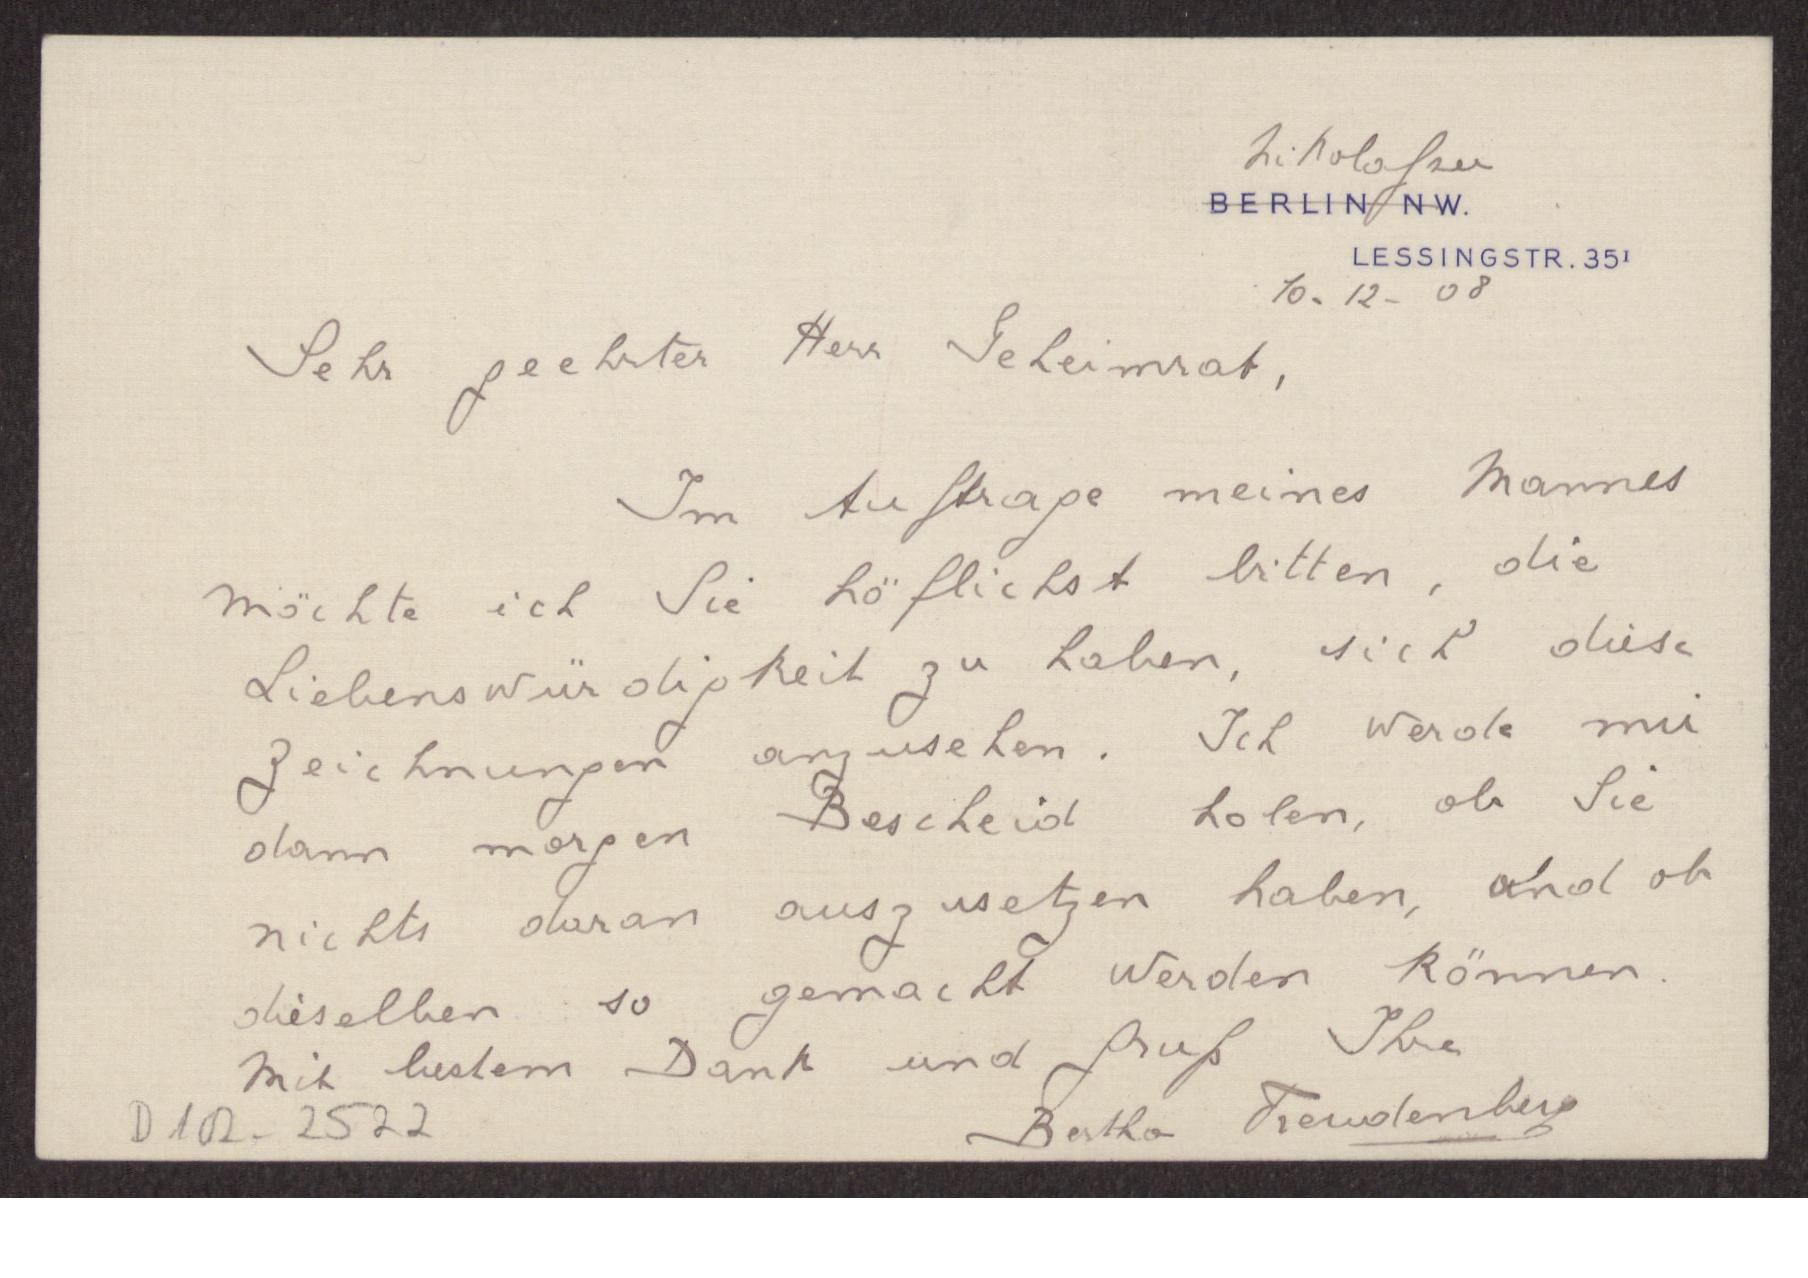 Nikolassee
BERLIN NW.
LESSINGSTR. 35I
10. 12. 08
Sehr geehrter Herr Geheimrat,
Im Auftrage meines Mannes
möchte ich Sie höflichst bitten, die
Liebenswürdigkeit zu haben, sich diese
Zeichnungen anzusehen. Ich werde mir
dann morgen Bescheid holen, ob Sie
nichts daran auszusetzen haben, und ob
dieselben so gemacht werden können.
Mit bestem Dank und Gruß Ihre
Bertha Freudenberg
D 102-2522